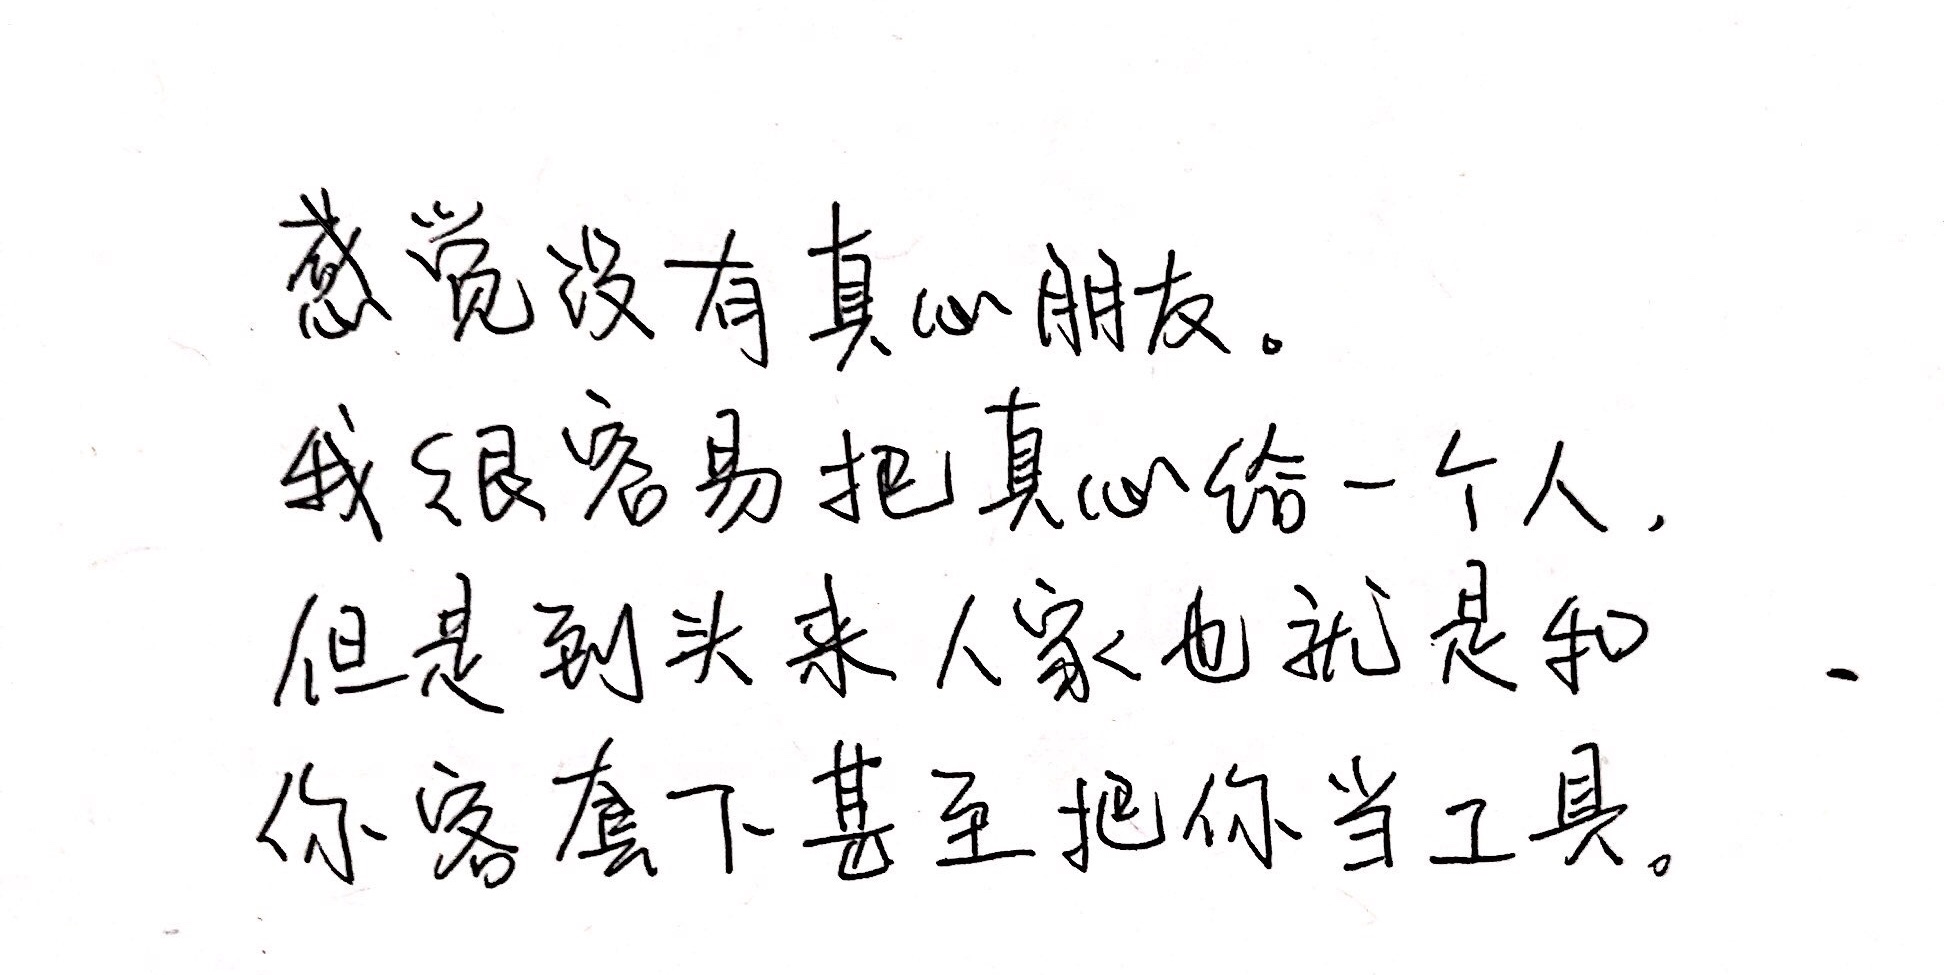 感觉没有真心朋友。
我很容易把真心给一个人，
但是到头来人家也就是和
你客套下甚至把你当工具。